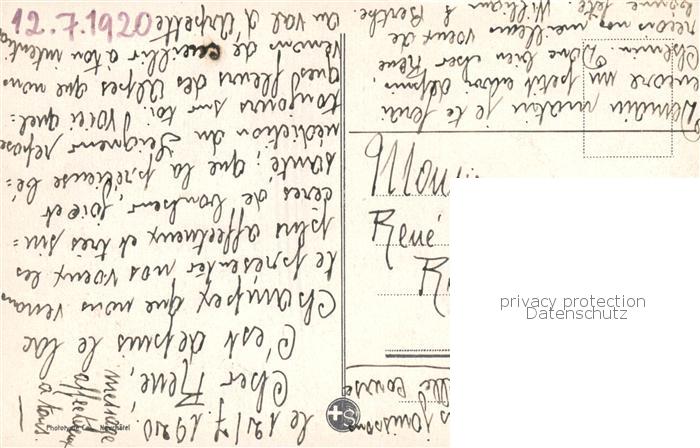 12.7.1920
le 12/7.1920
Cher René,
C'est depuis le lac
Champex que nous venons
te présenter nos voeux les
plus affectueux et très sin=
cères de bonheur, joie et
santé; que la précieuse bé=
nédiction du Seigneur repose
toujours sur toi. Voici quel=
ques fleurs des Alpes que nous
venons de cueillir à ton intention
au val d'Arpette
Demain matin je te ferai
encore un petit envoi depuis
Chemin. Donc bien cher René
reçois nos meilleurs voeux de
bonne fête. William & Berthe.
message
affectueux
à tous
jouissons
course
René
privacy protection
Datenschutz
Neuchâtel